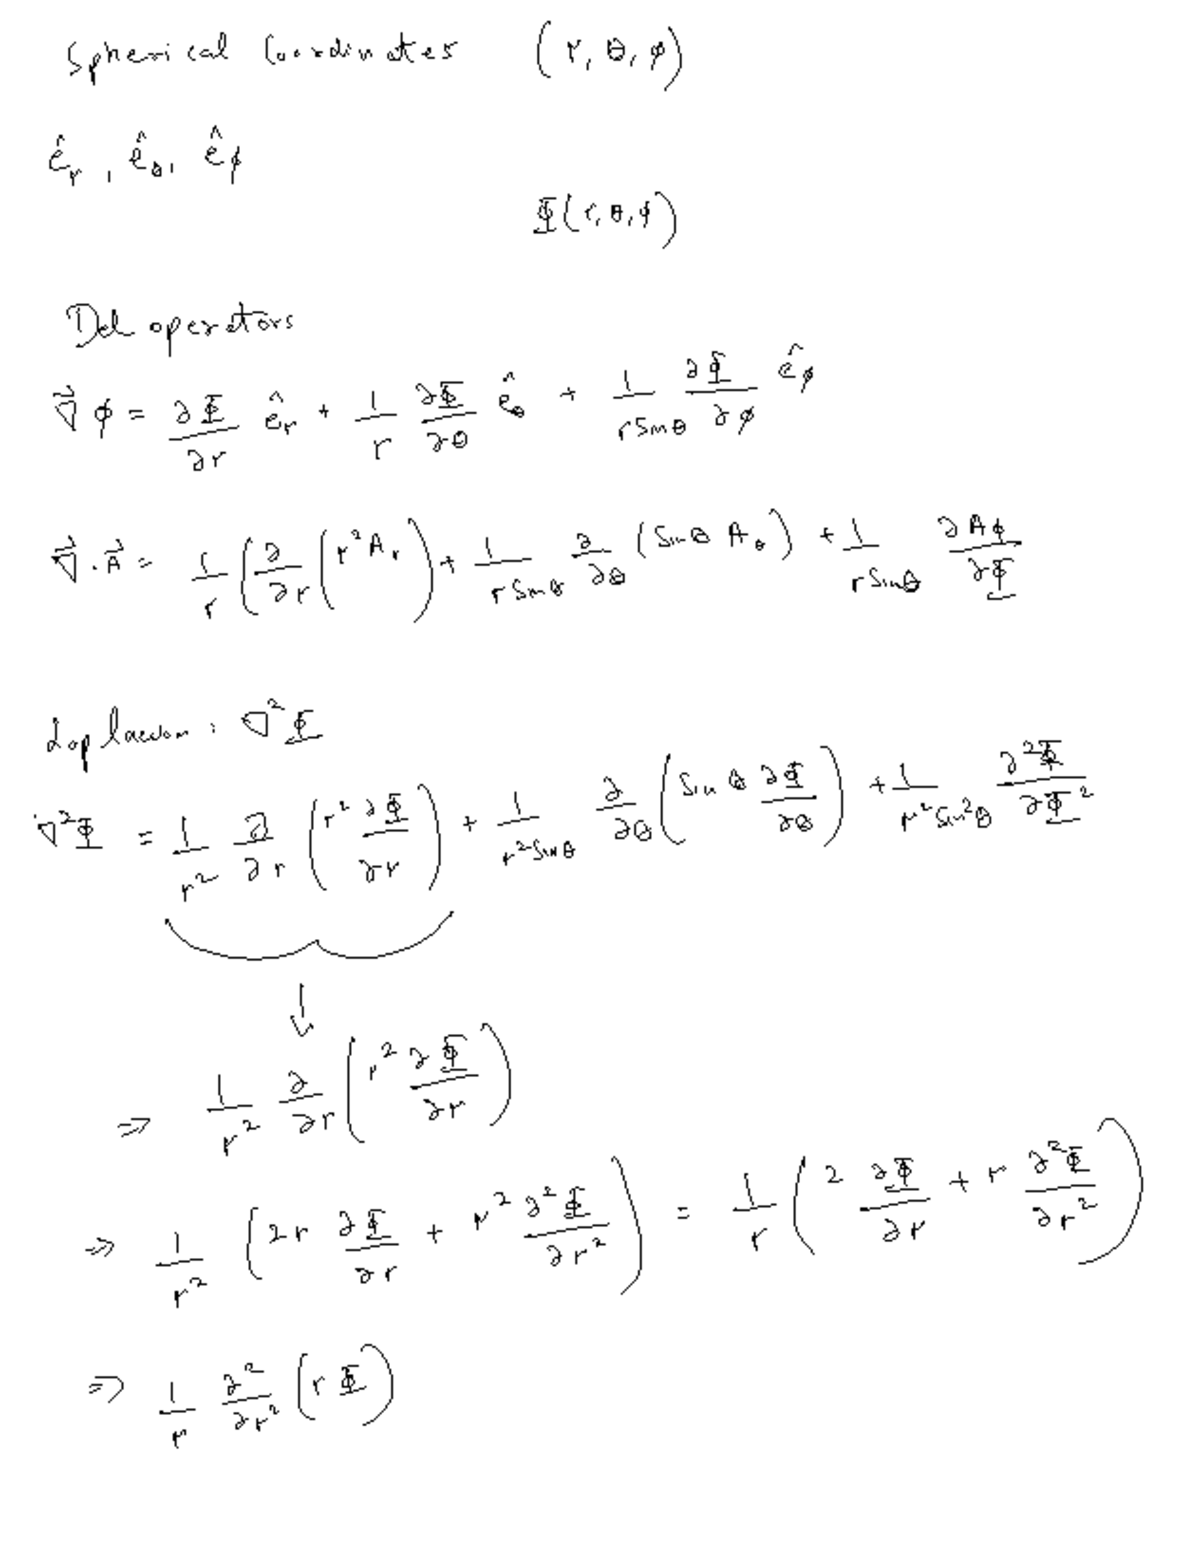 Spherical Coordinates (r, θ, φ)
ê_r, ê_θ, ê_φ
Φ(r, θ, φ)
Del operators
∇⃗ φ = ∂Φ/∂r ê_r + 1/r ∂Φ/∂θ ê_θ + 1/(r Sinθ) ∂Φ/∂φ ê_φ
∇⃗ · A⃗ = 1/r (∂/∂r (r² A_r) + 1/(r Sinθ) ∂/∂θ (Sinθ A_θ) + 1/(r Sinθ) ∂A_φ/∂Φ
Laplacian: ∇²Φ
∇²Φ = 1/r² ∂/∂r (r² ∂Φ/∂r) + 1/(r² Sinθ) ∂/∂θ (Sin θ ∂Φ/∂θ) + 1/(r² Sin²θ) ∂²Φ/∂Φ²
↓
⇒ 1/r² ∂/∂r (r² ∂Φ/∂r)
⇒ 1/r² (2r ∂Φ/∂r + r² ∂²Φ/∂r²) = 1/r (2 ∂Φ/∂r + r ∂²Φ/∂r²)
⇒ 1/r ∂²/∂r² (r Φ)